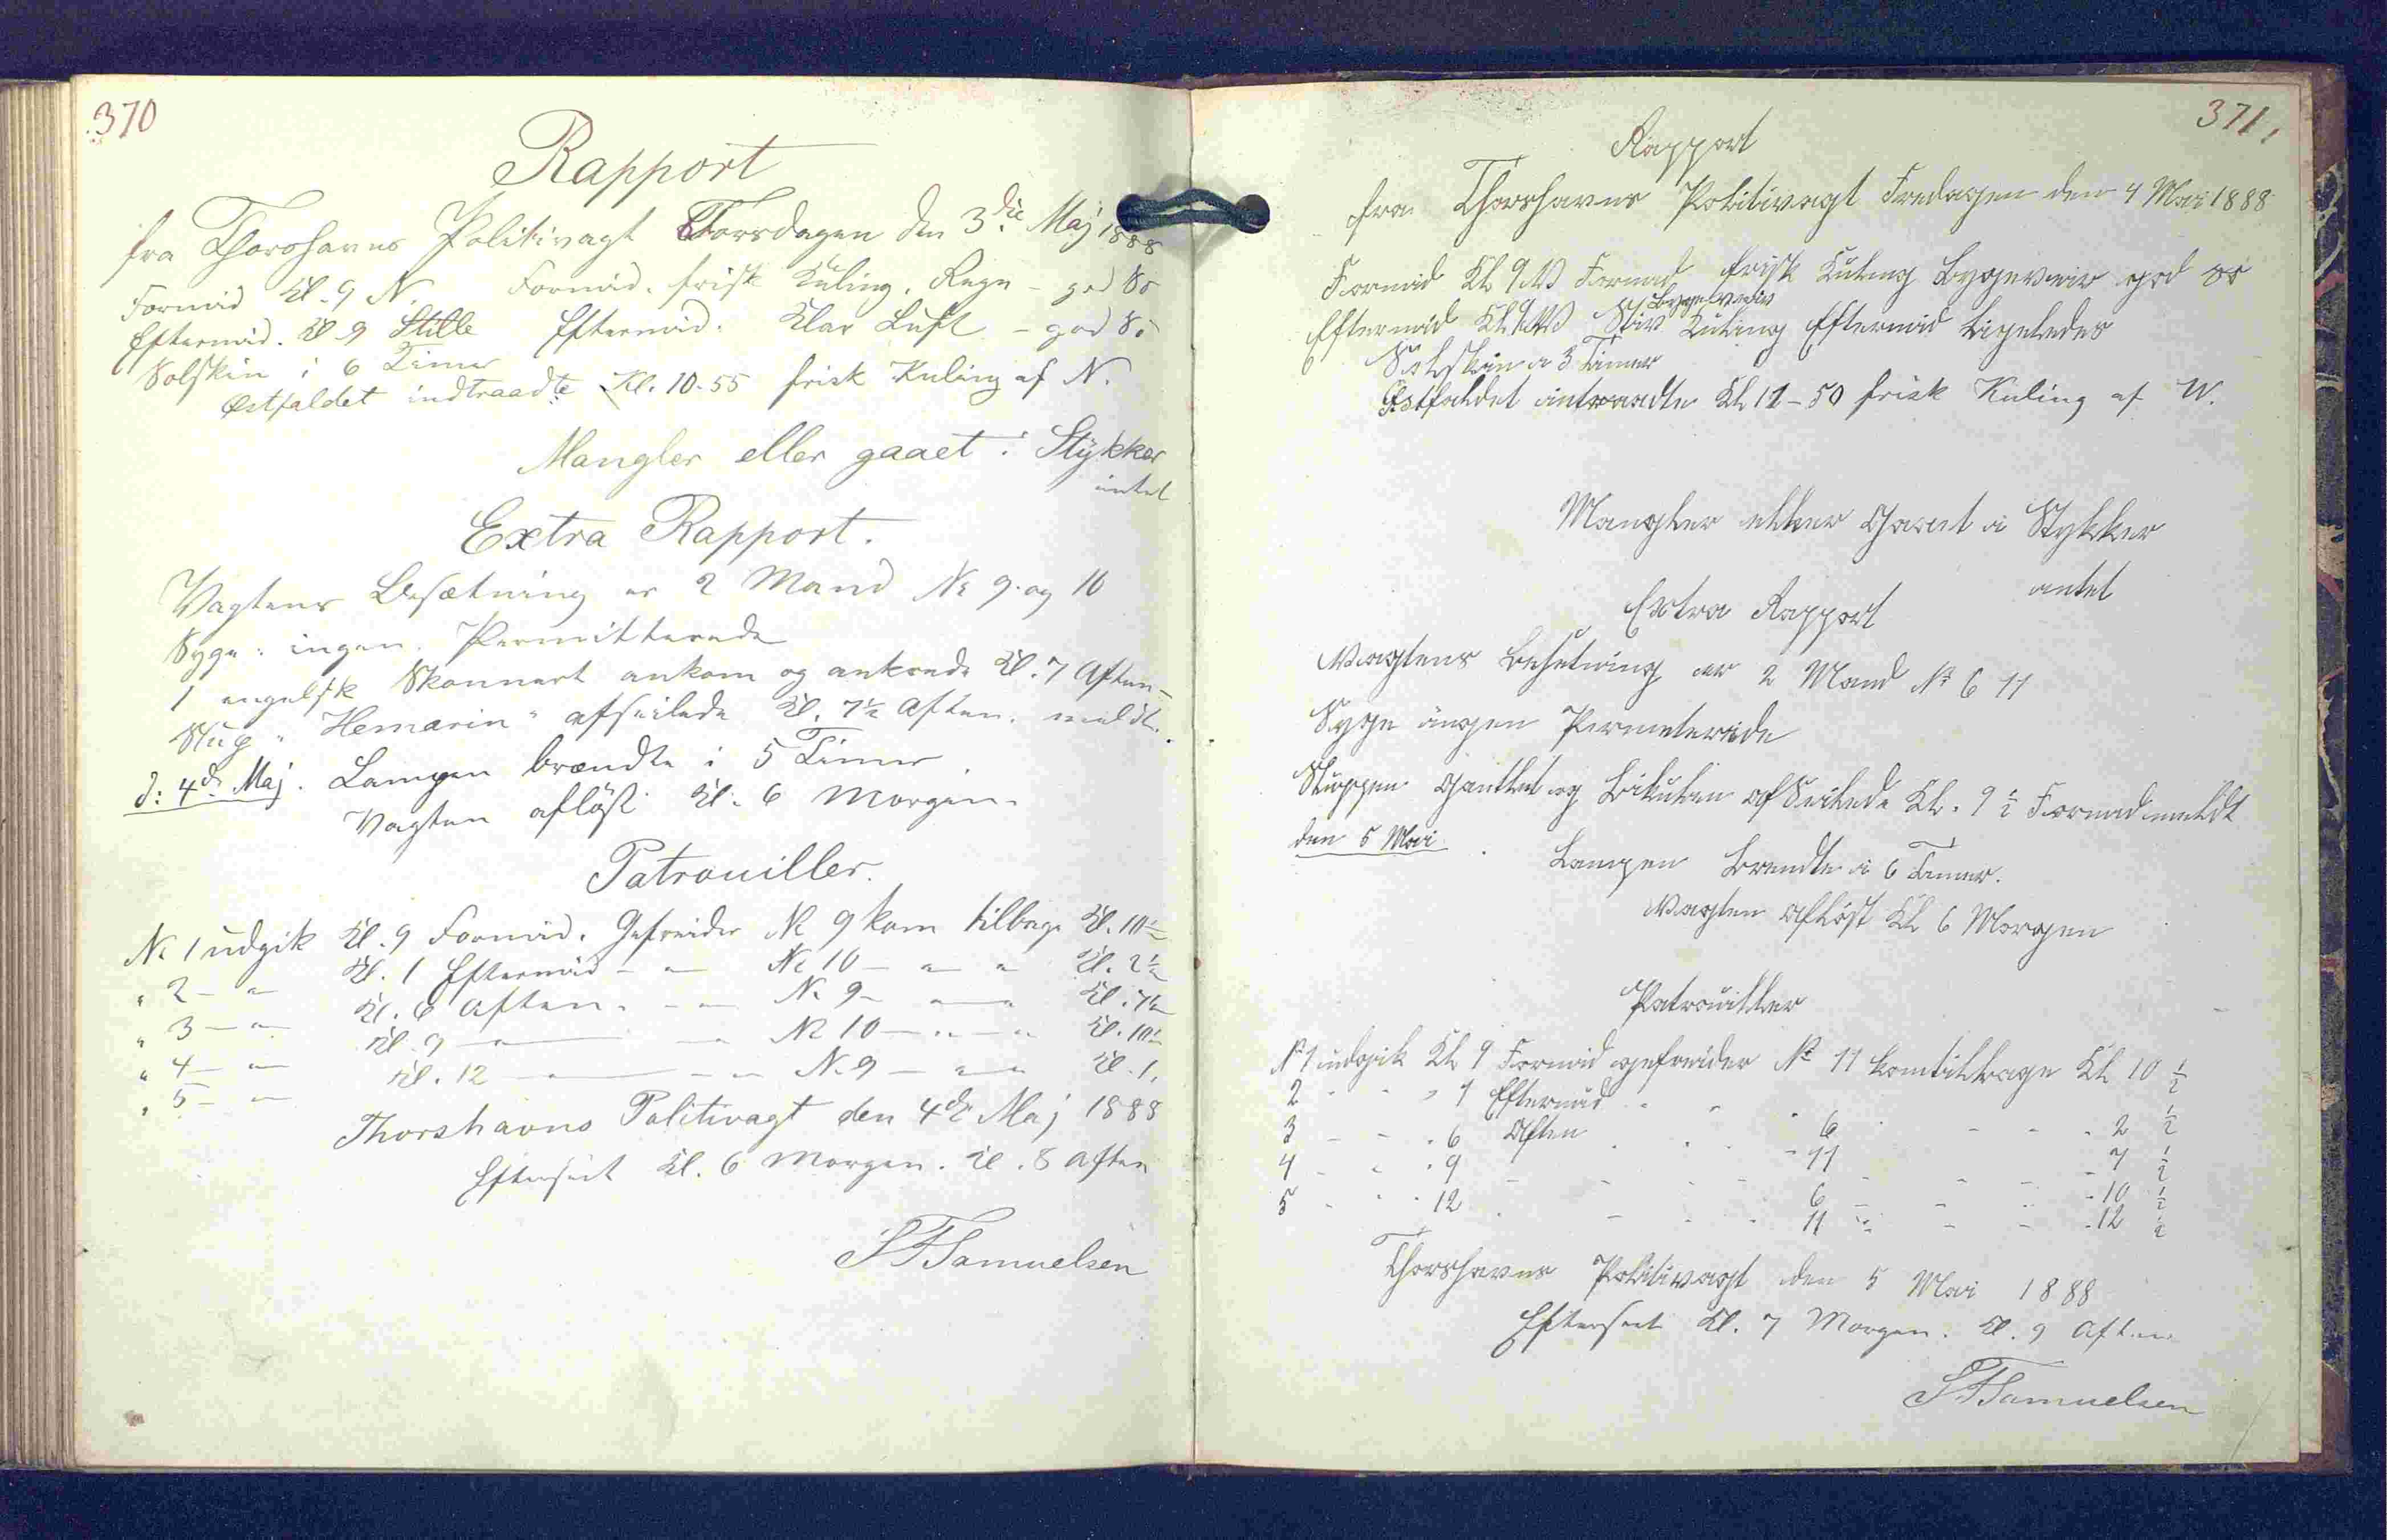 370
Rapport
fra Thorshavns Politivagt Torsdagen den 3die Maj 1888
Formid Kl. 9 N. Formid. frisk Kuling, Regn - god Sö
Eftermid. Kl 9 Stille Eftermid. Klar Luft - god Sö
Solskin i 6 Timer
Østfaldet indtraadte Kl. 10-55 frisk Kuling af N.
Mangler eller gaaet i Stykker
intet
Extra Rapport.
Vagtens Besætning er 2 Mand No 9 og 10
Syge: ingen. Permitterede
1 engelsk Skonnert ankom og ankrede Kl. 7 Aften -
Slup "Hemarin" afseilede Kl. 7½ Aften. meldt.
d: 4de Maj. Lampen brændte i 5 Timer.
Vagten aflöst Kl. 6 Morgen.
Patrouiller.
No 1 udgik Kl. 9 Formid. Gefreider No 9 kom tilbage Kl. 10½
" 2 - " - Kl. 1 Eftermid - " - No 10 - " - " Kl. 2½
" 3 - " - Kl. 6 Aften. - " - No 9 - " - " Kl. 7½
" 4 - " - Kl. 9 - " - - " - No 10 - " - " Kl. 10½
" 5 - " - Kl. 12 - " - - " - No 9 - " - " Kl. 1.
Thorshavns Politivagt den 4de Maj 1888
Efterseet Kl. 6 Morgen. Kl. 8 Aften
Samuelsen
371,
Rapport
fra Thorshavns Politivagt Fredagen den 4 Mai 1888
Formid Kl 9 W Formid frisk Kuling Bygeveir god sö
Bygeveir
Eftermid Kl 9 W Stiv Kuling Eftermid Ligeledes
Solskin i 3 Timer
Østfaldet intraadte Kl 11-50 frisk Kuling af W.
Mangler eller Gaaet i Stykker
intet
Extra Rapport
Vagtens Besetning er 2 Mand No 6 11
Syge ingen Permeterede
Sluppen og afseilede Kl. 9½ Formid meldt
den 5 Mai. Lampen Brendte i 6 Timer.
Vagten Aflöst Kl 6 Morgen
Patrouiller
No 1 udgik Kl 9 Formid gefreider No 11 kom tilbage Kl 10 ½
2 - - " 1 Eftermid - - - 6 - - - 2 ½
3 - - - 6 Aften - - - 11 - - - 7 ½
4 - - - 9 - - - - 6 - - - 10 ½
5 - - - 12 - - - - 11 - - - 12 ½
Thorshavns Politivagt den 5 Mai 1888
Efterseet Kl. 7 Morgen. Kl. 9 Aften
Samuelsen